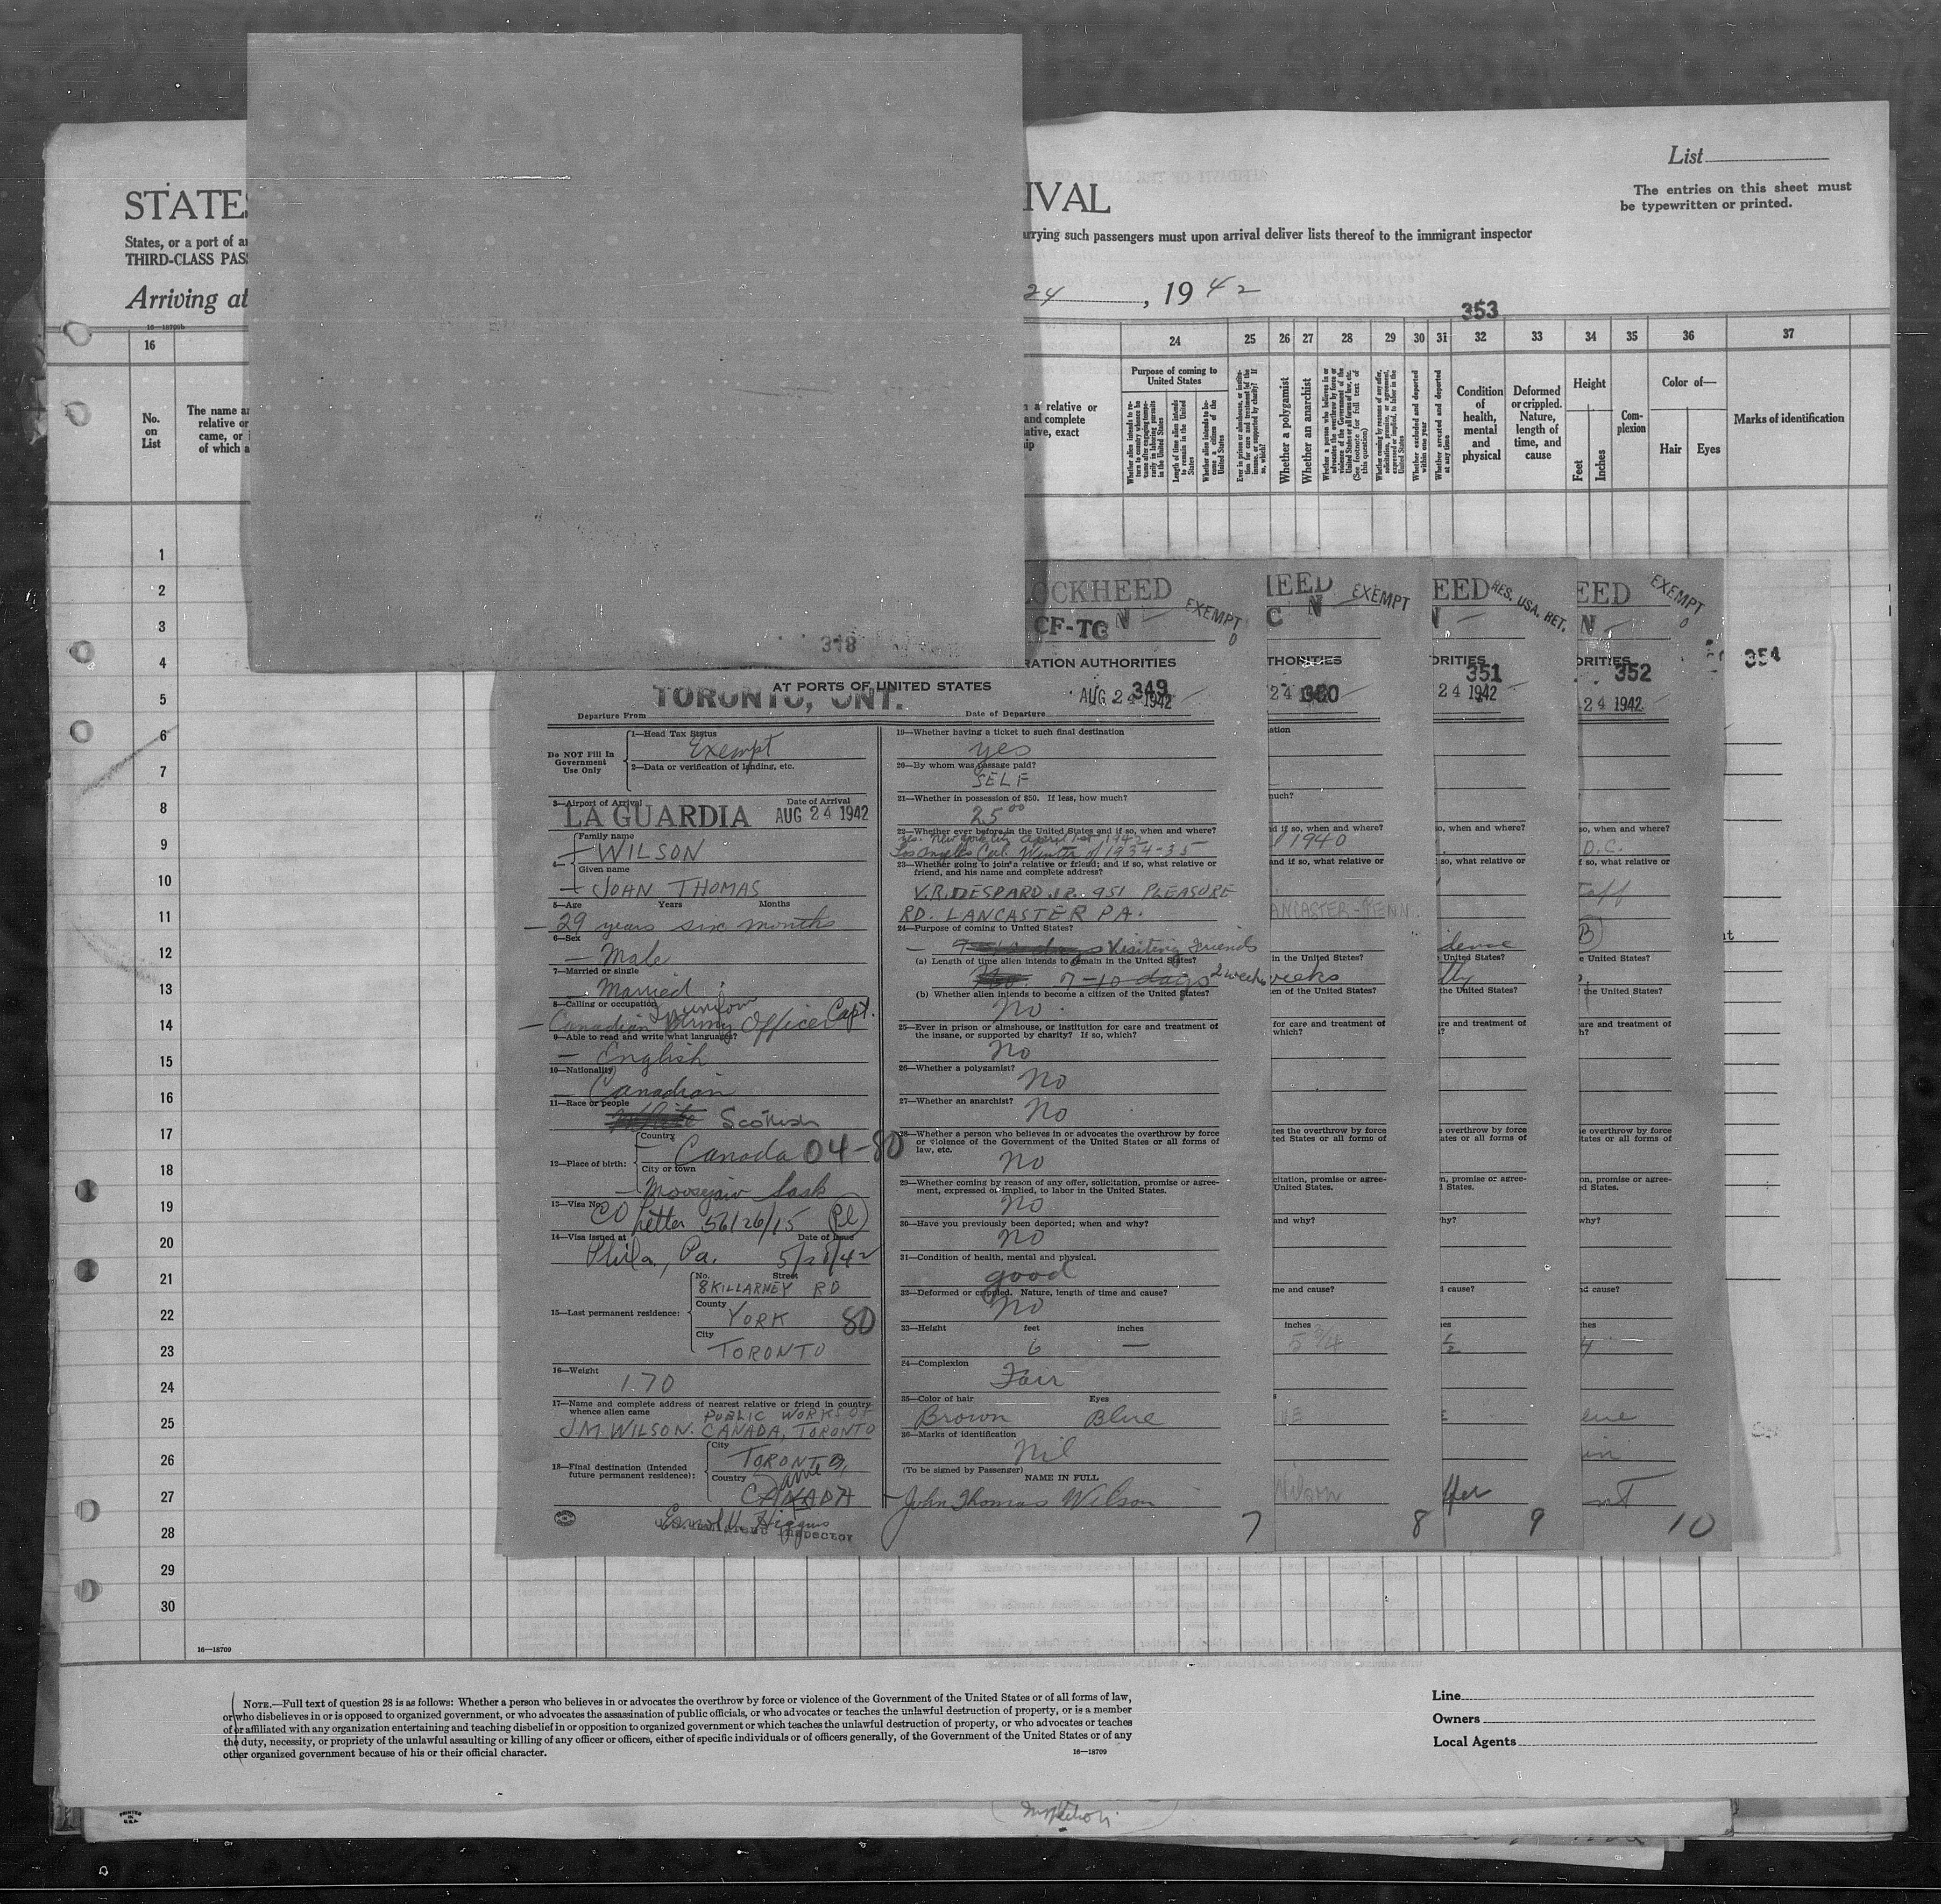 List
The entries on this sheet must
be typewritten or printed.
STATES
IVAL
States, or a port of
rrying such passengers must upon arrival deliver lists thereof to the immigrant inspector
THIRD-CLASS PAS
Arriving at
24, 1942
353
16 24 25 26 27 28 29 30 31 32 33 34 35 36 37
No.
on
List
The name
relative or
came, or
of which
a relative or
and complete
ative, exact
Purpose of coming to
United States
Whether a polygamist
Whether an anarchist
Whether excluded and deported
within one year
Whether arrested and deported
at any time
Condition
of
health,
mental
and
physical
Deformed
or crippled.
Nature,
length of
time, and
cause
Height
Feet
Inches
Com-
plexion
Color of—
Hair Eyes
Marks of identification
1
2
3
4
5
6
7
8
9
10
11
12
13
14
15
16
17
18
19
20
21
22
23
24
25
26
27
28
29
30
16—18709
348
OCKHEED
CF-TC N EXEMPT
RATION AUTHORITIES
AT PORTS OF UNITED STATES
349
TORONTO, ONT. AUG 24 1942
Departure From Date of Departure
Do NOT Fill In
Government
Use Only
1—Head Tax Status
Exempt
2—Data or verification of landing, etc.
3—Airport of Arrival Date of Arrival
LA GUARDIA AUG 24 1942
4—
Family name
WILSON
Given name
JOHN THOMAS
5—Age Years Months
29 years six months
6—Sex
Male
7—Married or single
Married
8—Calling or occupation
Canadian Army Officer Capt.
9—Able to read and write what languages?
English
10—Nationality
Canadian
11—Race or people
White Scottish
12—Place of birth:
Country
Canada 04-80
City or town
Moosejaw Sask
13—Visa No.
CO Letter 56/26/15
14—Visa issued at Date of Issue
Phila, Pa.
15—Last permanent residence:
No. Street
8 KILLARNEY RD
County
YORK 80
City
TORONTO
16—Weight
170
17—Name and complete address of nearest relative or friend in country
whence alien came
PUBLIC WORKS OF
J.M. WILSON. CANADA, TORONTO
18—Final destination (Intended
future permanent residence):
City
TORONTO
Country
CANADA
Same
INSPECTOR
19—Whether having a ticket to such final destination
yes
20—By whom was passage paid?
SELF
21—Whether in possession of $50. If less, how much?
25 00
22—Whether ever before in the United States and if so, when and where?
yes. New York City April 1st 1942
Los Angeles Cal. Winter of 1934-35
23—Whether going to join a relative or friend; and if so, what relative or
friend, and his name and complete address?
V.R. DESPARD JR. 951 PLEASURE
RD. LANCASTER PA.
24—Purpose of coming to United States?
Visiting friends
(a) Length of time alien intends to remain in the United States?
7-10 days 2 weeks
(b) Whether alien intends to become a citizen of the United States?
No
25—Ever in prison or almshouse, or institution for care and treatment of
the insane, or supported by charity? If so, which?
No
26—Whether a polygamist?
No
27—Whether an anarchist?
No
28—Whether a person who believes in or advocates the overthrow by force
or violence of the Government of the United States or all forms of
law, etc.
No
29—Whether coming by reason of any offer, solicitation, promise or agree-
ment, expressed or implied, to labor in the United States.
No
30—Have you previously been deported; when and why?
No
31—Condition of health, mental and physical.
good
32—Deformed or crippled. Nature, length of time and cause?
No
33—Height feet inches
6 —
34—Complexion
Fair
35—Color of hair Eyes
Brown Blue
36—Marks of identification
Nil
(To be signed by Passenger) NAME IN FULL
John Thomas Wilson
7
HEED
C N EXEMPT
THORITIES
24
ation
much?
d if so, when and where?
1940
and if so, what relative or
ANCASTER-PENN.
in the United States?
weeks
en of the United States?
for care and treatment of
which?
tes the overthrow by force
ted States or all forms of
citation, promise or agree-
United States.
and why?
me and cause?
inches
5 3/4
Wilson
8
EED RES. USA. RET.
ORITIES
351
24 1942
o, when and where?
so, what relative or
dence
United States?
tly
the United States?
re and treatment of
overthrow by force
ates or all forms of
n, promise or agree-
d States.
hy?
d cause?
1/2
ffer
9
EED EXEMPT
N
ORITIES
352
24 1942
so, when and where?
D.C.
f so, what relative or
B
e United States?
the United States?
are and treatment of
e overthrow by force
tates or all forms of
on, promise or agree-
ed States.
why?
nd cause?
hes
4
10
354
NOTE.—Full text of question 28 is as follows: Whether a person who believes in or advocates the overthrow by force or violence of the Government of the United States or of all forms of law,
or who disbelieves in or is opposed to organized government, or who advocates the assassination of public officials, or who advocates or teaches the unlawful destruction of property, or is a member
of or affiliated with any organization entertaining and teaching disbelief in or opposition to organized government or which teaches the unlawful destruction of property, or who advocates or teaches
the duty, necessity, or propriety of the unlawful assaulting or killing of any officer or officers, either of specific individuals or of officers generally, of the Government of the United States or of any
other organized government because of his or their official character.
16—18709
Line
Owners
Local Agents
PRINTED
IN
U.S.A.